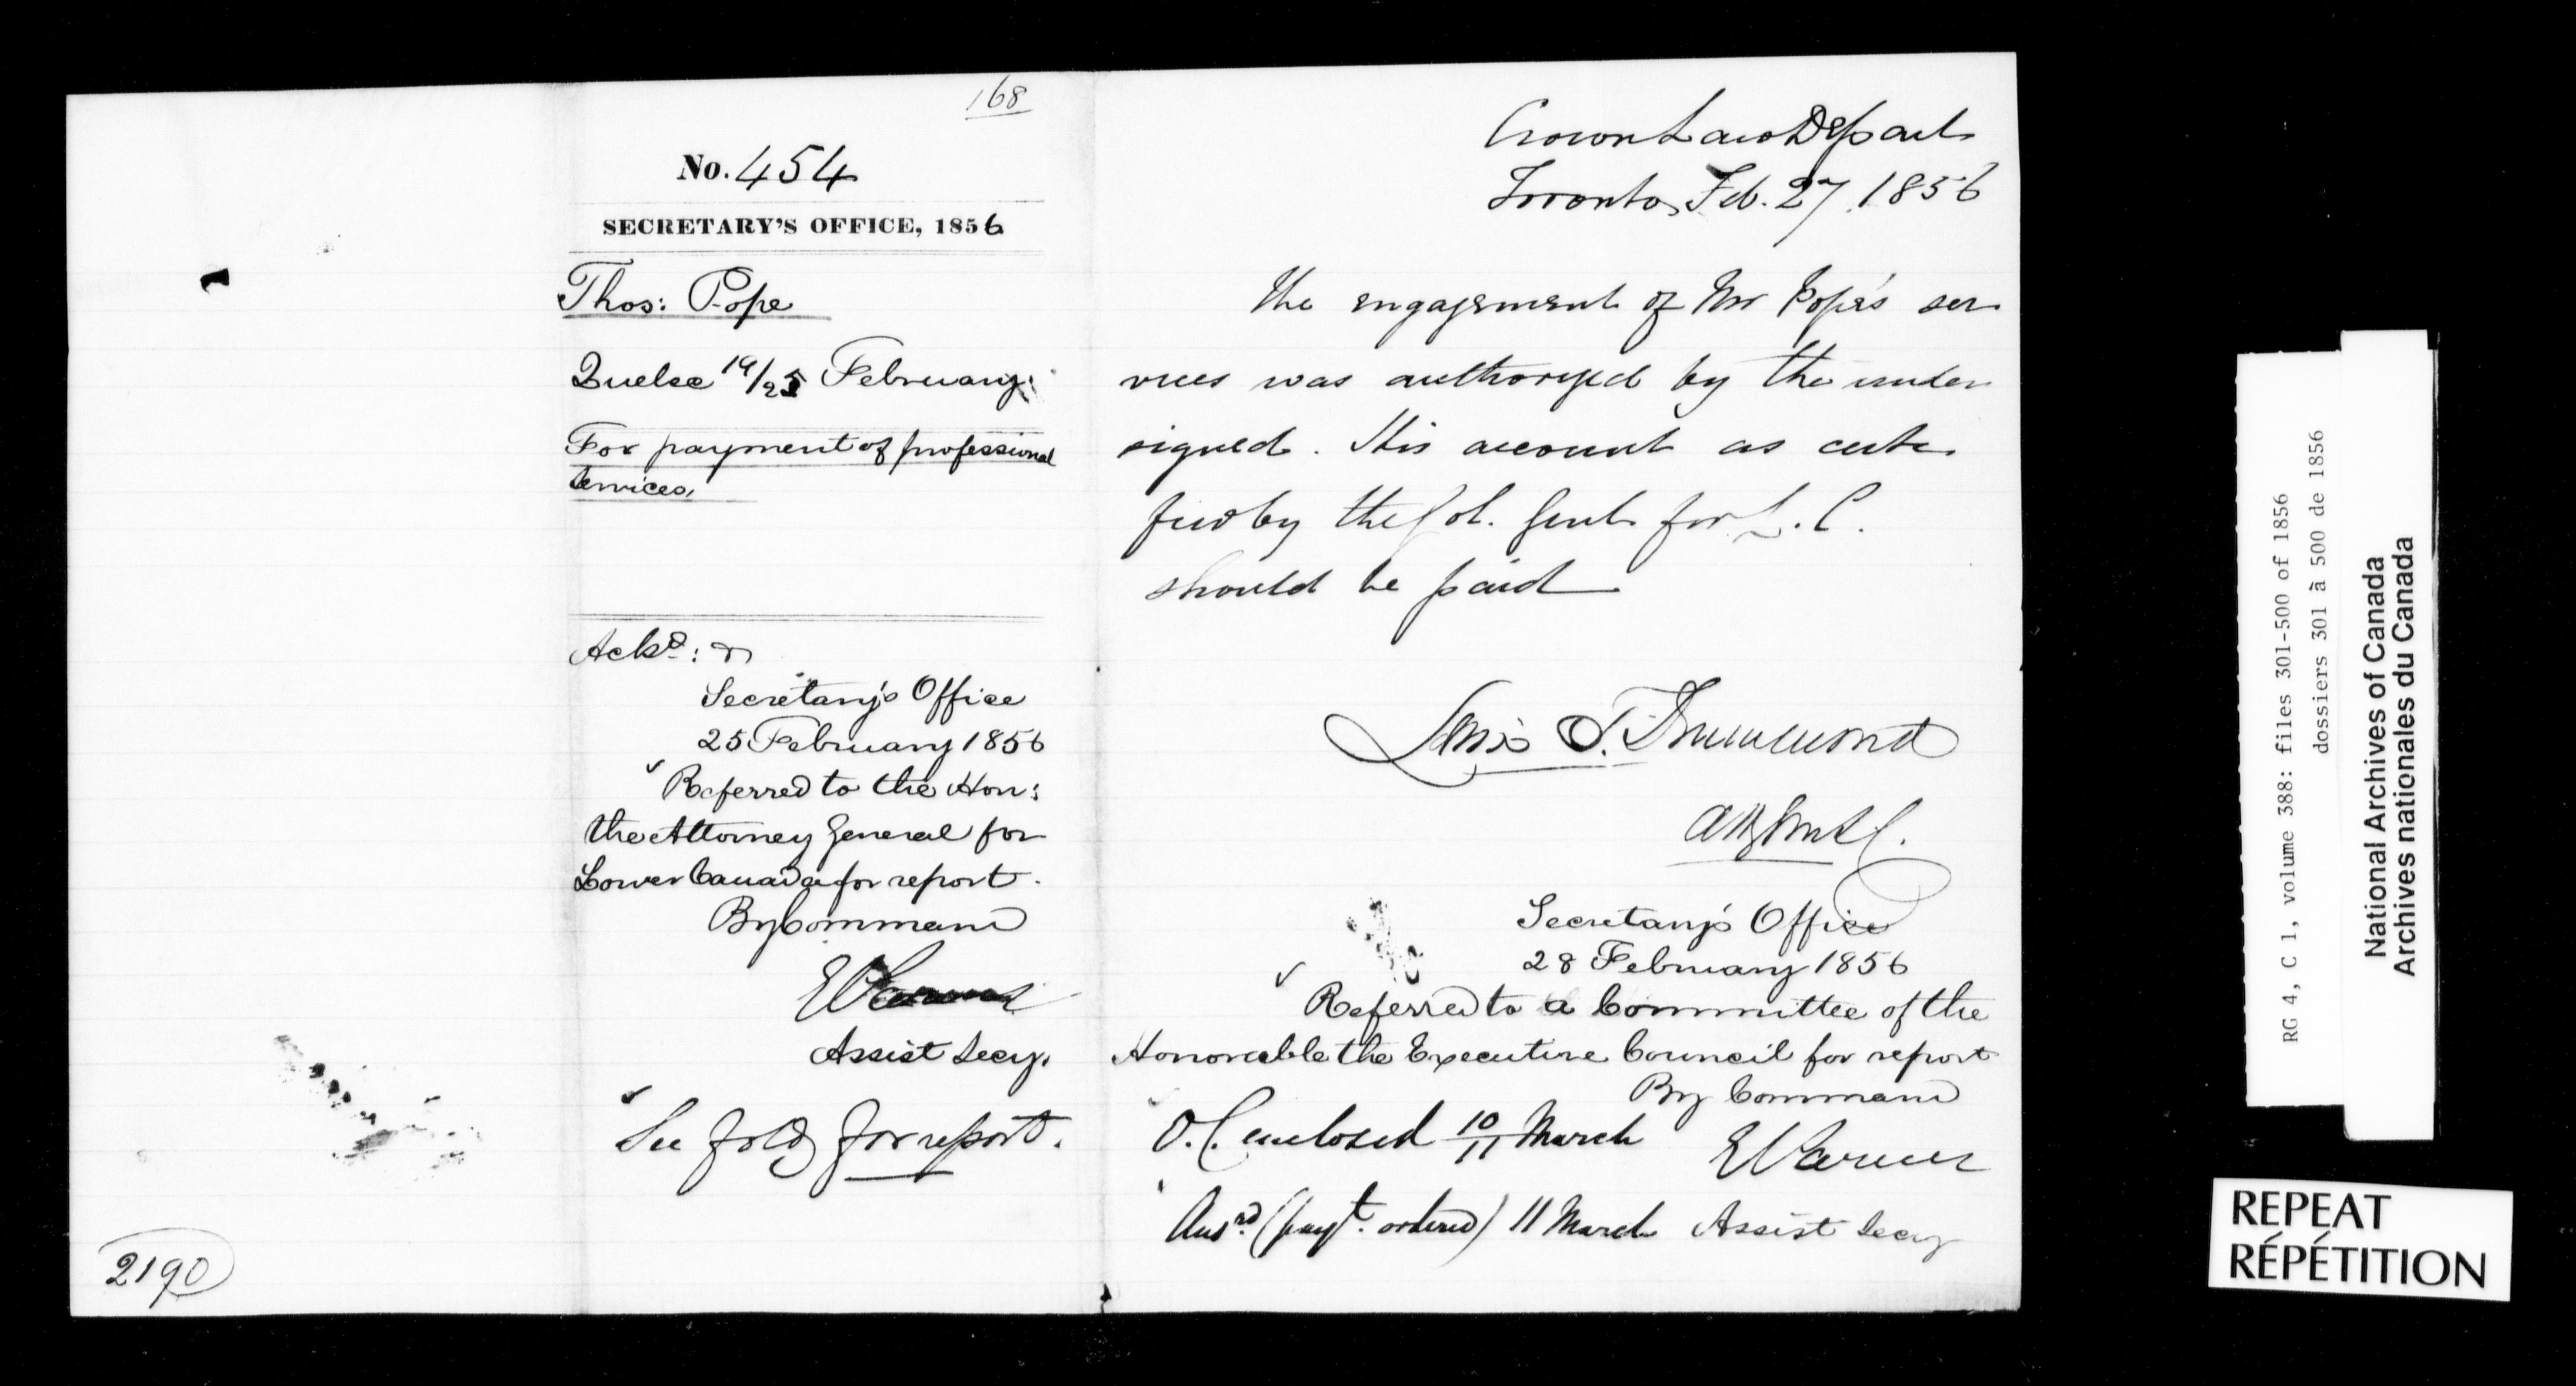 168
No. 454
SECRETARY'S OFFICE, 1856
Thos: Pope
Quebec 19/25 February
For payment of professional
Services,
Ackd:
Secretary's Office
25 February 1856
Referred to the Hon:
the Attorney General for
Lower Canada for report.
By Command
E Parent
Assist Secy.
See fold for report.
2190
Crown Law Depart
Toronto, Feb. 27. 1856
The engagement of Mr Pope's ser
vices was authorized by the under
signed. His account as certi
fied by the Sol. Genl. for L. C.
should be paid
Lewis T. Drummond
Secretary's Office
28 February 1856
Referred to a Committee of the
Honorable the Executive Council for report
By Command
O. C. enclosed 10/11 March
E Parent
Ansrd. (payt. ordered) 11 March
Assist Secy
RG 4, C 1, volume 388: files 301-500 of 1856
dossiers 301 à 500 de 1856
National Archives of Canada
Archives nationales du Canada
REPEAT
RÉPÉTITION